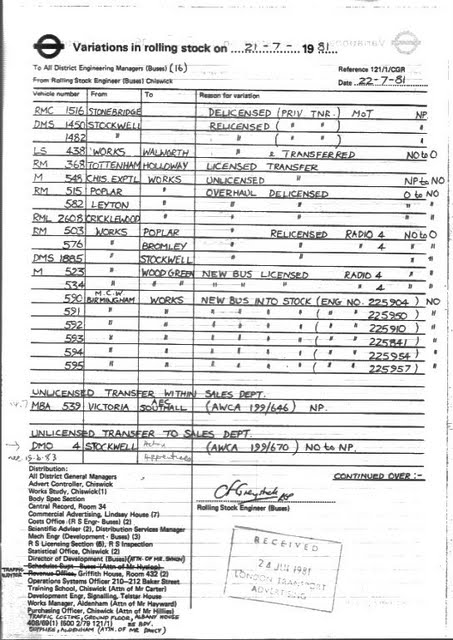 Variations in rolling stock on 21-7- 1981.
To All District Engineering Managers (Buses) (16)
Reference 121/1/CGR
From Rolling Stock Engineer (Buses) Chiswick
Date 22-7-81
Vehicle number From To Reason for variation
RMC 1516 STONEBRIDGE DELICENSED (PRIV TNR.) MoT NP
DMS 1450 STOCKWELL RELICENSED ( " " ) "
1482 " " ( " " ) "
LS 438 WORKS WALWORTH " & TRANSFERRED NO to O
RM 368 TOTTENHAM HOLLOWAY LICENSED TRANSFER
M 548 CHIS. EXPTL WORKS UNLICENSED " NP to NO
RM 515 POPLAR " OVERHAUL DELICENSED O to NO
582 LEYTON " " " " "
RML 2608 CRICKLEWOOD " " " " "
RM 503 WORKS POPLAR " RELICENSED RADIO 4 NO to O
576 " BROMLEY " " " 4 " "
DMS 1885 " STOCKWELL " " "
M 523 " WOOD GREEN NEW BUS LICENSED RADIO 4 "
534 " " " " " " 4 "
590 M.C.W BIRMINGHAM WORKS NEW BUS INTO STOCK (ENG NO. 225904) NO
591 " " " " " " ( " " 225950) "
592 " " " " " " ( " " 225910) "
593 " " " " " " ( " " 225841) "
594 " " " " " " ( " " 225954) "
595 " " " " " " ( " " 225957) "
UNLICENSED TRANSFER WITHIN SALES DEPT.
MBA 539 VICTORIA AEC SOUTHALL (AWCA 199/646) NP.
UNLICENSED TRANSFER TO SALES DEPT.
DMO 4 STOCKWELL (AWCA 199/670) NO to NP.
Distribution:
CONTINUED OVER :-
All District General Managers
Advert Controller, Chiswick
Works Study, Chiswick(1)
Body Spec Section
Central Record, Room 34
Commercial Advertising, Lindsey House (7)
Rolling Stock Engineer (Buses)
Costs Office (R S Engr- Buses) (2)
Scientific Adviser (2), Distribution Services Manager
Mech Engr (Development) (3)
R S Licensing Section (8), R S Inspection
Statistical Office, Chiswick (2)
Director of Development (Buses)
Schedules Supt- Buses
TRAFFIC AUDITOR
Revenue Office, Griffith House, Room 432 (2)
Operations Systems Officer 210-212 Baker Street
Training School, Chiswick (Attn of Mr Carter)
Development Engr, Signalling, Telstar House
Works Manager, Aldenham (Attn of Mr Hayward)
Purchasing Officer, Chiswick (Attn of Mr Hillies)
TRAFFIC COSTING, GROUND FLOOR, ALBANY HOUSE
RECEIVED
24 JUL 1981
LONDON TRANSPORT
ADVERTISING